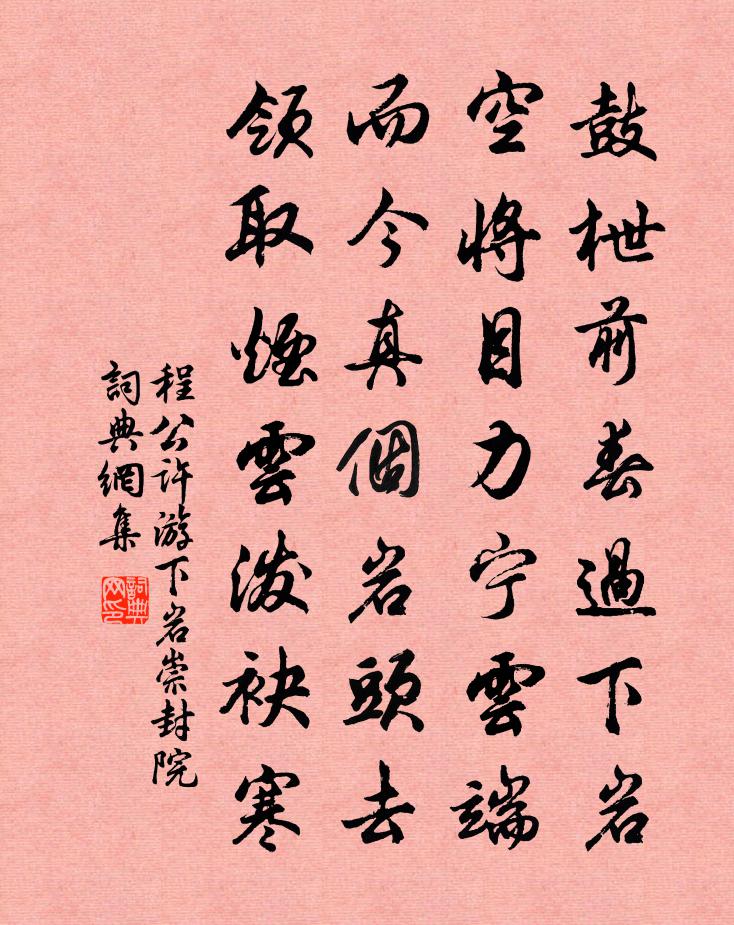 鼓枻前春過下岩
空將目力宁雲端
而今真個岩頭去
領取煙雲泼袂寒
程公許游下岩崇封院
詞典網集
詞典網印